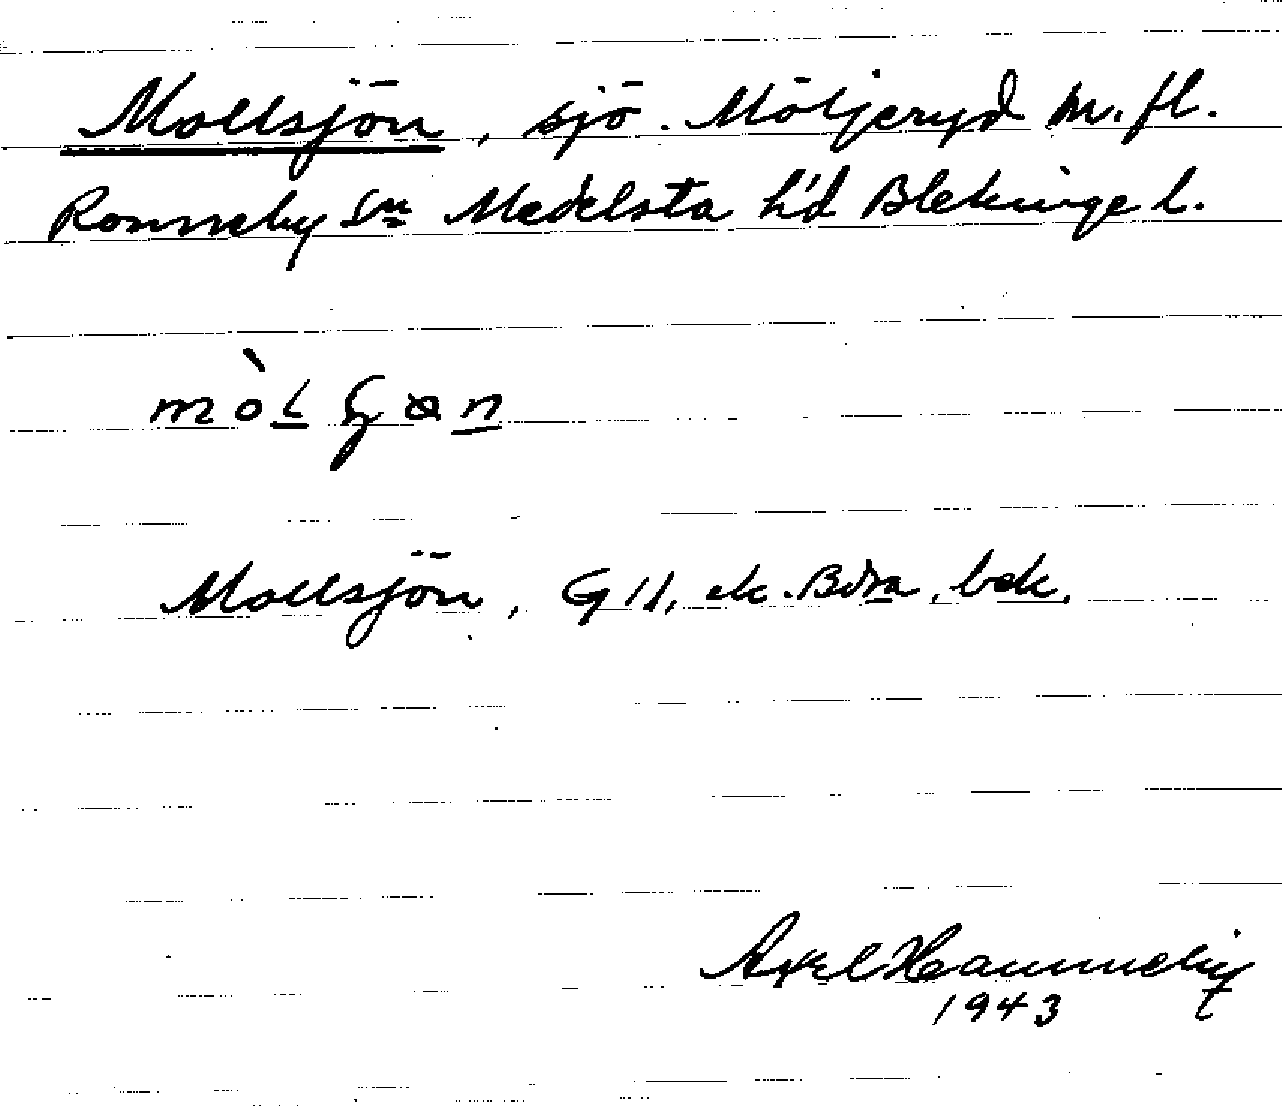 Mollsjön, sjö. Möljeryd m. fl.
Ronneby sn Medelsta h'd Blekinge l.
Mollsjön, G 11, ek. Bdra, bek.
Axel
1943